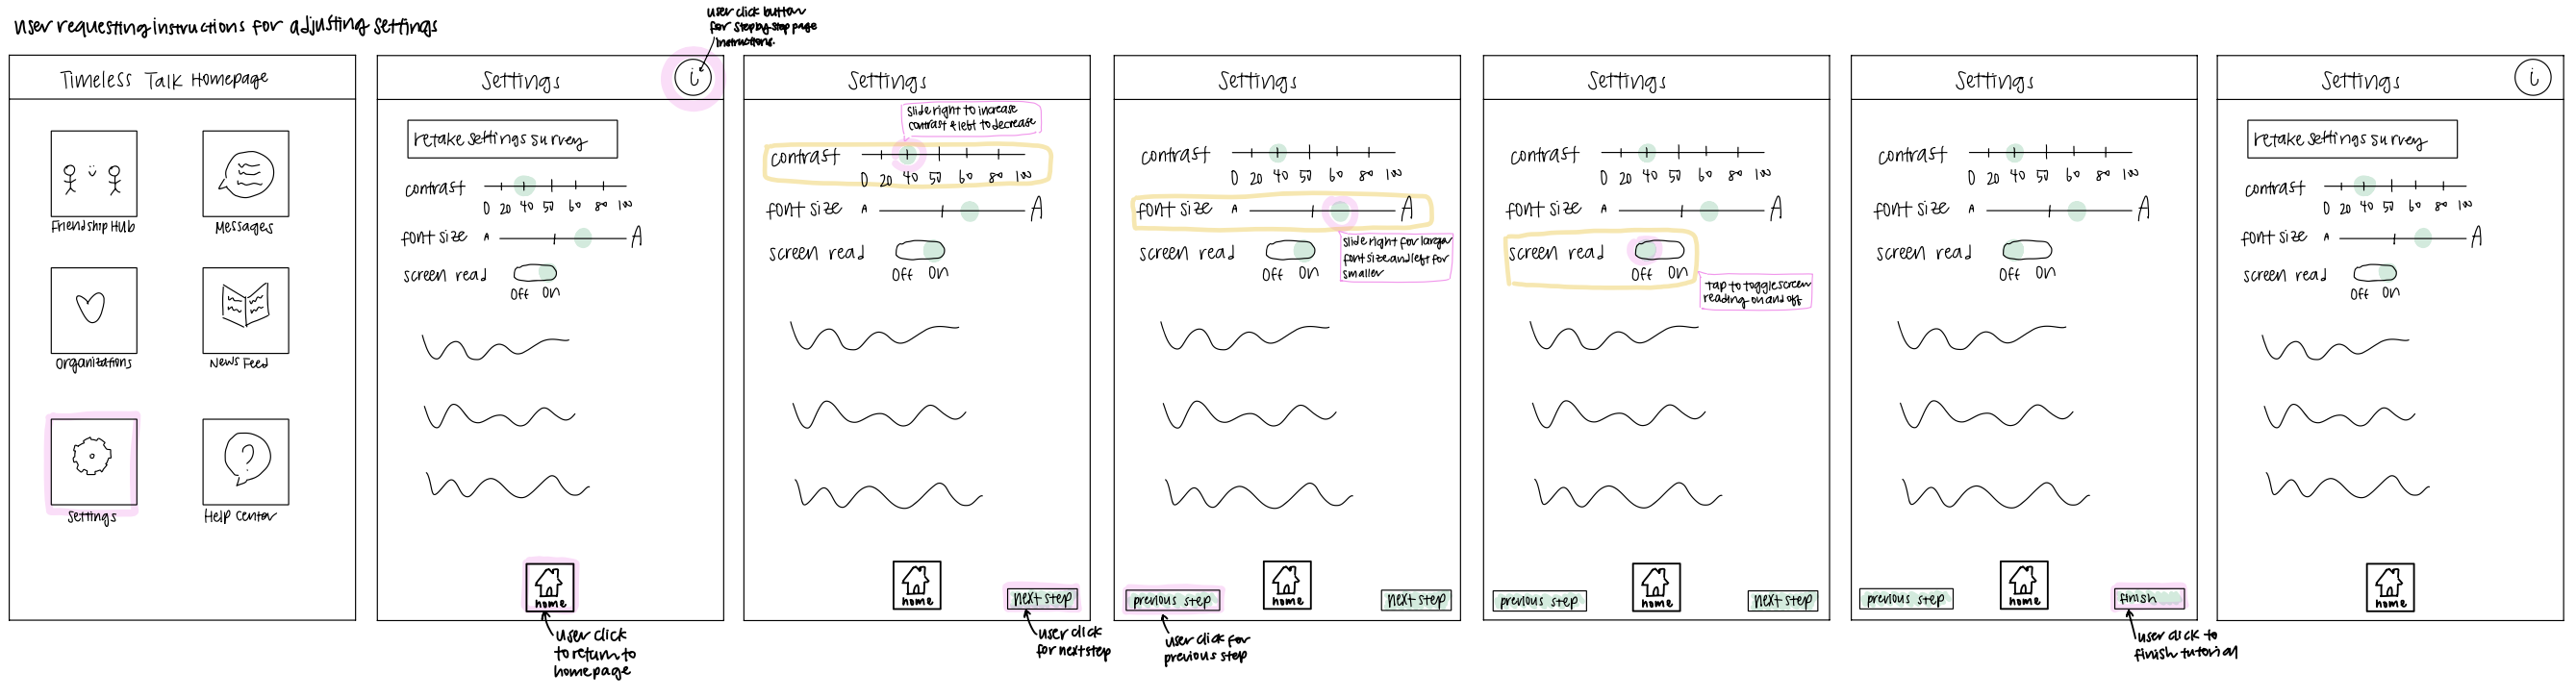 user requesting instructions for adjusting settings
user click button
for step by step page
instructions.
Timeless Talk Homepage
Friendship Hub
Messages
Organizations
News Feed
Settings
Help Center
Settings
i
retake settings survey
contrast
0 20 40 50 60 80 100
font size A A
screen read
Off On
home
user click
to return to
homepage
Settings
slide right to increase
contrast & left to decrease
contrast
0 20 40 50 60 80 100
font size A A
screen read
Off On
home
next step
user click
for next step
Settings
contrast
0 20 40 50 60 80 100
font size A A
slide right for larger
font size and left for
smaller
screen read
Off On
previous step
home
next step
user click for
previous step
Settings
contrast
0 20 40 50 60 80 100
font size A A
screen read
Off On
tap to toggle screen
reading on and off
previous step
home
next step
Settings
contrast
0 20 40 50 60 80 100
font size A A
screen read
Off On
previous step
home
finish
user click to
finish tutorial
Settings
i
retake settings survey
contrast
0 20 40 50 60 80 100
font size A A
screen read
Off On
home